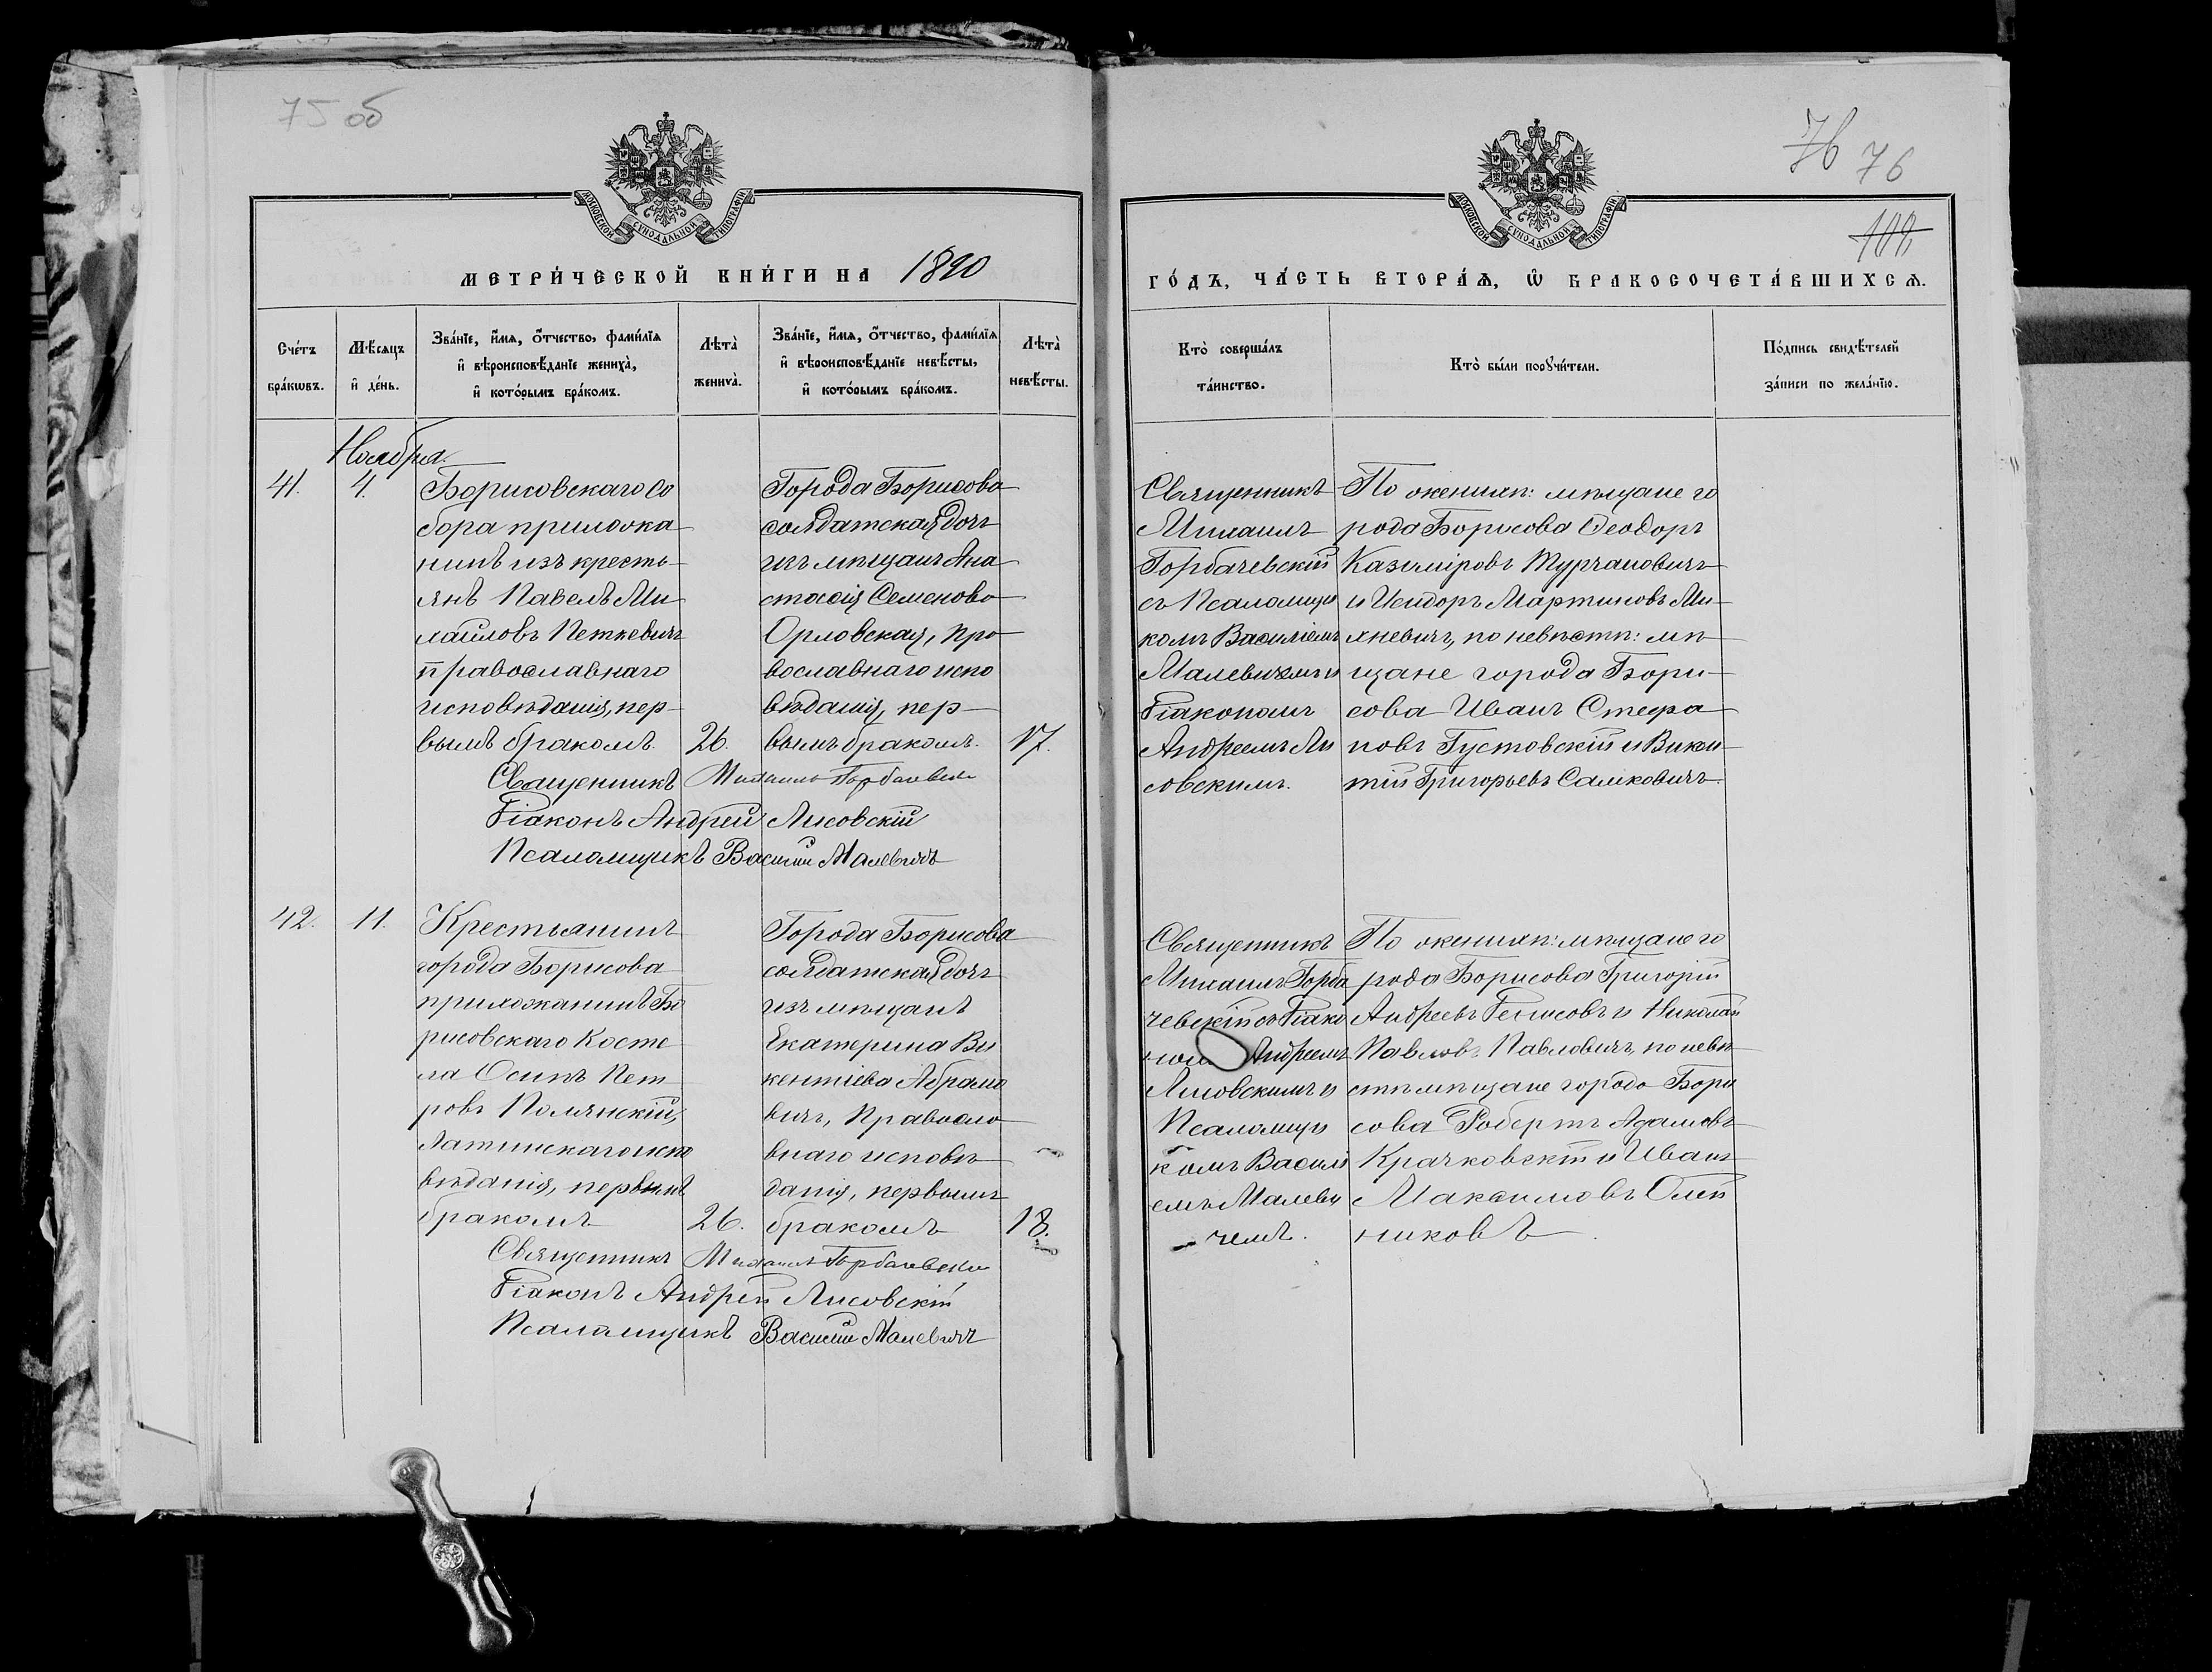 75 об
МОСКОВСКОЙ СѴНОДАЛЬНОЙ ТИПОГРАФІИ
МЕТРИ́ЧЕСКОЙ КНИ́ГИ НА 1890
Сче́тъ бра́кѡвъ.
Мѣ́сяцъ и҆ де́нь.
Зва́нїе, и҆́мѧ, ѻ҆́тчество, фами́лїѧ и҆ вѣроисповѣ́данїе жениха̀, и҆ кото́рымъ бра́комъ.
Лѣта̀ жениха̀.
Зва́нїе, и҆́мѧ, ѻ҆́тчество, фами́лїѧ и҆ вѣроисповѣ́данїе невѣ́сты, и҆ кото́рымъ бра́комъ.
Лѣта̀ невѣ́сты.
Ноября.
41.
4.
Борисовскаго Со
бора прихожа
нинъ изъ кресть-
янъ Павелъ Ми
хайловъ Петкевичъ
православнаго
исповѣданія, пер-
вымъ бракомъ.
26.
Города Борисова
солдатская дочь
изъ мѣщанъ Ана
стасія Семенова
Орловская, пра
вославнаго испо
вѣданія, пер-
вымъ бракомъ.
17.
Священникъ Михаилъ Горбачевскій
Діаконъ Андрей Лисовскій
Псаломщикъ Василій Малевичъ
42.
11.
Крестьянинъ
города Борисова
прихожанинъ Бо
рисовскаго Косте
ла Осипъ Пет
ровъ Полянскій,
Латинскаго испо
вѣданія, первымъ
бракомъ
26.
Города Борисова
солдатская дочь
изъ мѣщанъ
Екатерина Ви
кентіева Абрамо
вичъ, Правосла
внаго исповѣ
данія, первымъ
бракомъ
18.
Священникъ Михаилъ Горбачевскій
Діаконъ Андрей Лисовскій
Псаломщикъ Василій Малевичъ
76 76
102
МОСКОВСКОЙ СѴНОДАЛЬНОЙ ТИПОГРАФІИ
ГО́ДЪ, ЧА́СТЬ ВТОРА́Ѧ, Ѽ БРАКОСОЧЕТА́ВШИХСѦ.
Кто̀ соверша́лъ та́инство.
Кто̀ бы́ли порꙋчи́тели.
По́дпись свидѣ́телей за́писи по жела́нїю.
Священникъ
Михаилъ
Горбачевскій
съ Псаломщи
комъ Василіемъ
Малевичемъ и
Діакономъ
Андреемъ Ли
совскимъ.
По женихѣ: мѣщане го
рода Борисова Ѳеодоръ
Казиміровъ Турчановичъ
и Исидоръ Мартиновъ Ми-
хневичъ, по невѣстѣ: мѣ
щане города Бори-
сова Иванъ Стефа
новъ Густовскій и Викен-
тій Григорьевъ Самковичъ.
Священникъ
Михаилъ Горба
чевскій съ Діако
номъ Андреемъ
Лисовскимъ и
Псаломщи
комъ Василі
емъ Малеви
чемъ.
По женихѣ: мѣщане го
рода Борисова Григорій
Андреевъ Денисовъ и Николай
Павловъ Павловичъ, по невѣ
стѣ мѣщане города Бори
сова Робертъ Адамовъ
Крачковскій и Иванъ
Максимовъ Олей
никовъ